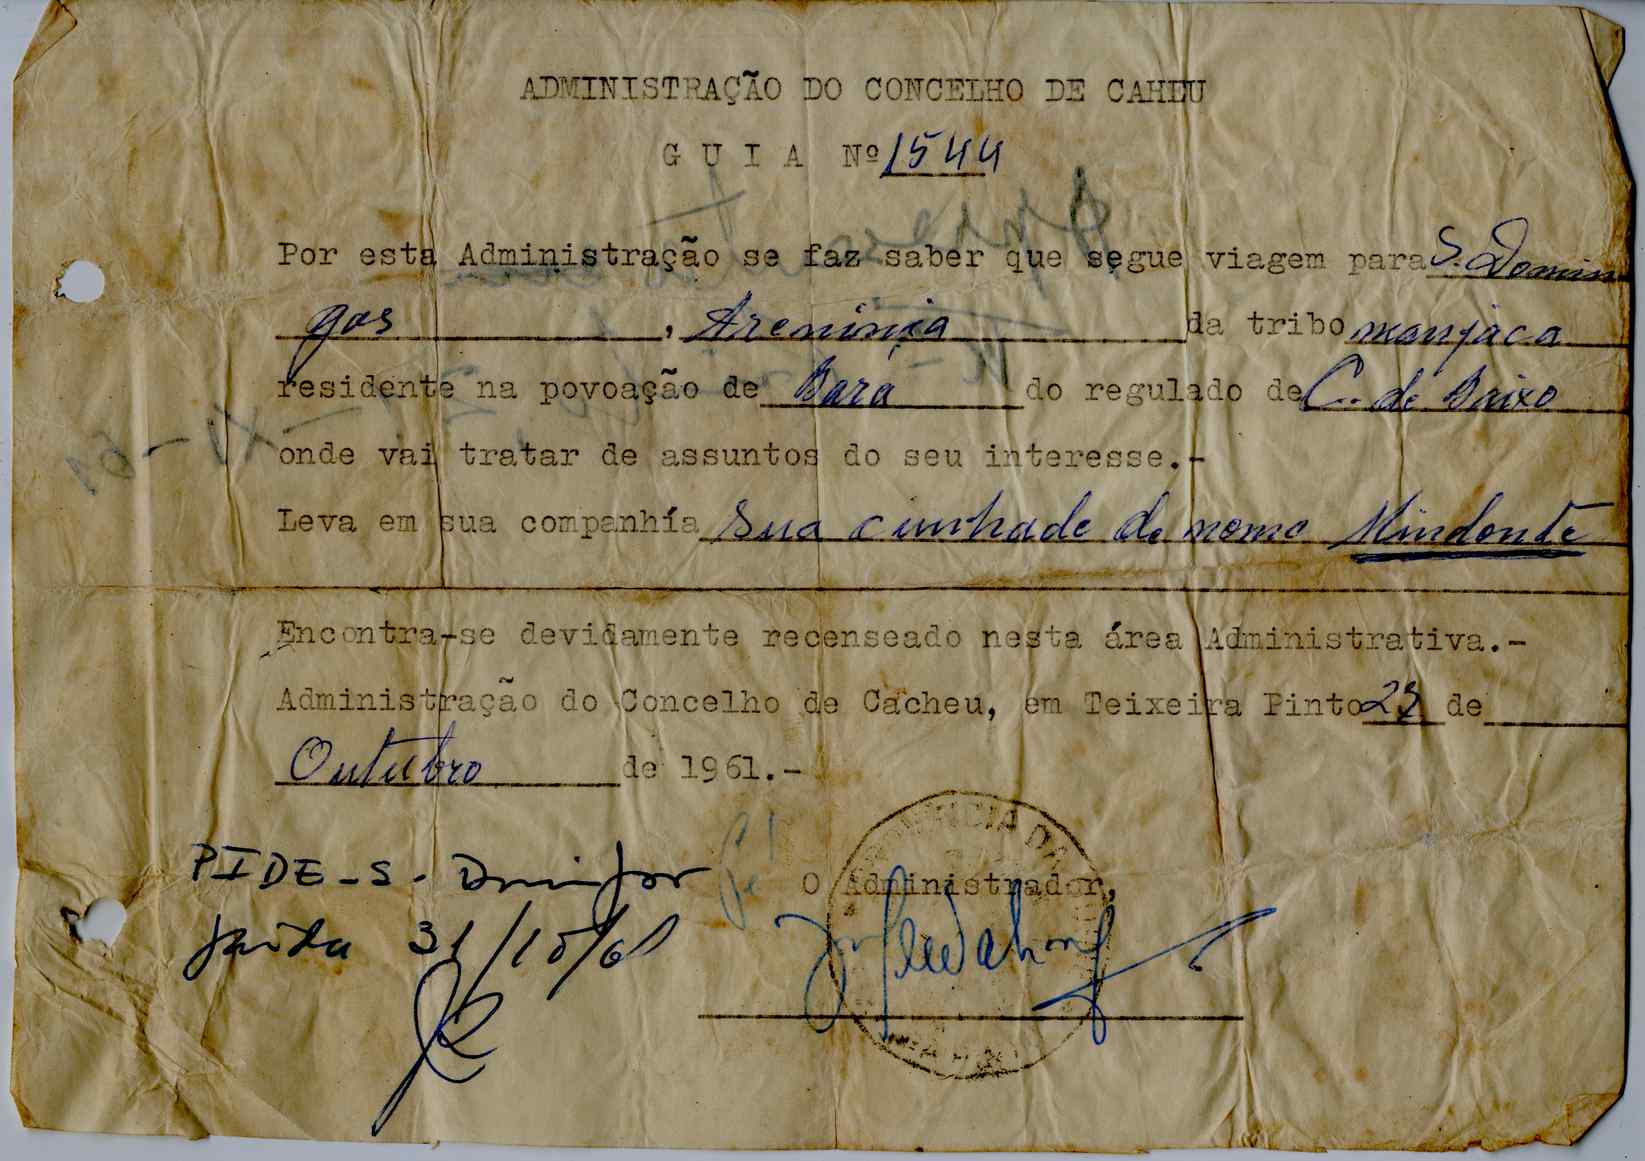 ADMINISTRAÇÃO DO CONCELHO DE CAHEU
G U I A Nº 1544
Por esta Administração se faz saber que segue viagem para S. Domin
gos, da tribo manjaca
residente na povoação de Bará do regulado de C. de Baixo
onde vai tratar de assuntos do seu interesse.-
Leva em sua companhía sua cunhade de nome Mindonte
Encontra-se devidamente recenseado nesta área Administrativa.-
Administração do Concelho de Cacheu, em Teixeira Pinto de
Outubro de 1961.-
PIDE - S. Domingos
O Administrador,
Saida 31/10/61